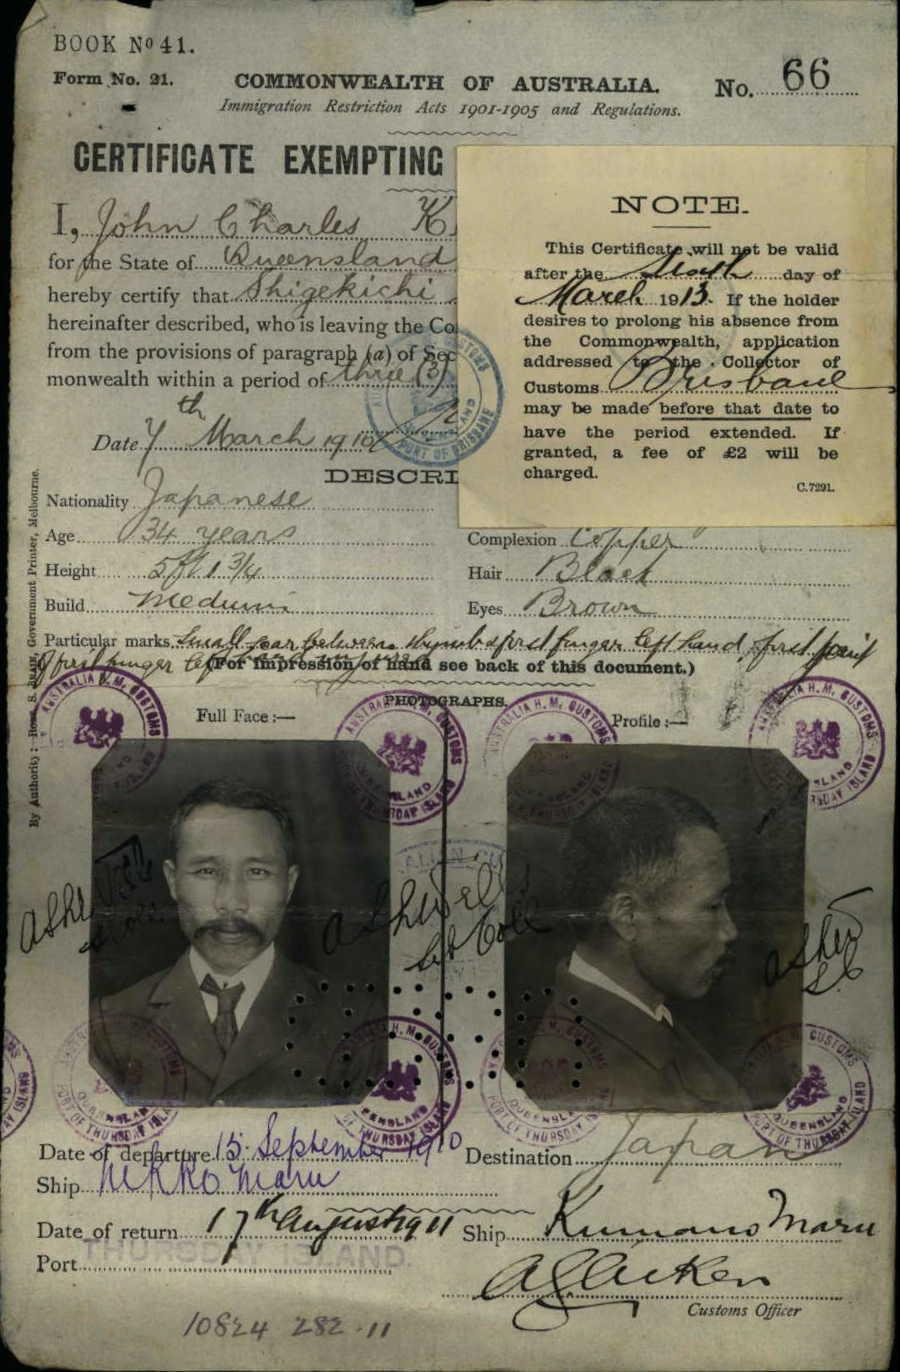 BOOK No 41.
Form No. 21.
COMMONWEALTH OF AUSTRALIA.
No. 66
Immigration Restriction Acts 1901-1905 and Regulations.
CERTIFICATE EXEMPTING
I, John Charles K
for the State of Queensland
hereby certify that Shigekichi
hereinafter described, who is leaving the Co
from the provisions of paragraph (a) of Sec
monwealth within a period of three (3)
Date 7th March 1910
DESCRI
NOTE.
This Certificate will not be valid
after the day of
March 1913. If the holder
desires to prolong his absence from
the Commonwealth, application
addressed to the Collector of
Customs Brisbane
may be made before that date to
have the period extended. If
granted, a fee of £2 will be
charged.
C.7291.
Nationality Japanese
Age 34 years
Height 5ft 1 3/4
Build Medium
Complexion Copper
Hair Black
Eyes Brown
Particular marks Small scar between thumb & first finger left hand, first joint
of first finger left
(For impression of hand see back of this document.)
PHOTOGRAPHS.
Full Face :—
Profile :—
By Authority: Government Printer, Melbourne.
AUSTRALIA H. M. CUSTOMS
QUEENSLAND
PORT OF THURSDAY ISLAND
PORT OF BRISBANE
Date of departure 15 September 1910
Destination Japan
Ship Nikko Maru
Date of return 17th August 1911
Ship Kumano Maru
Port THURSDAY ISLAND.
Customs Officer
10824 282.11